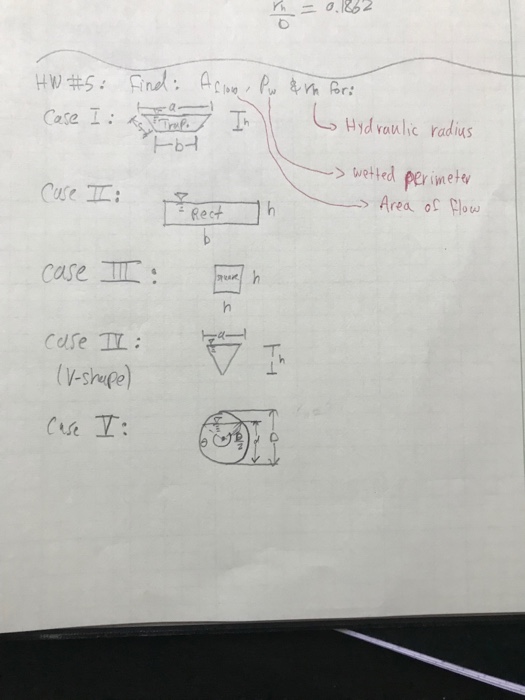 rh/D = 0.1862
HW #5: Find: Aflow, Pw & rh for:
Hydraulic radius
wetted perimeter
Area of flow
Case I:
a
Trap.
h
b
Case II:
Rect
h
b
Case III:
square
h
h
Case IV:
(V-shape)
a
h
Case V:
θ
D/2
D